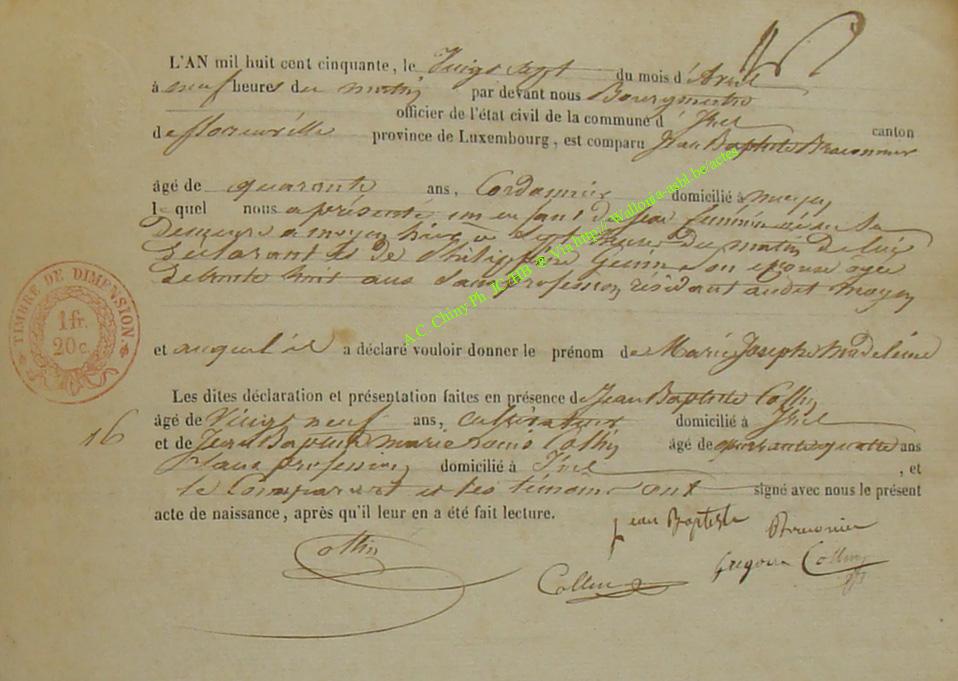 L'AN mil huit cent cinquante, le Vingt sept du mois d'Avril
à neuf heures du matin par devant nous Bourgmestre
officier de l'état civil de la commune d'Izel canton
de florenville province de Luxembourg, est comparu Jean Baptiste Braconnier
âgé de quarante ans, Cordonnier domicilié à moyen
lequel nous a présenté un enfant du sexe féminin né en sa
Demeure a moyen hier à Sept heures Du matin De lui
Déclarant et De Philippine Guérin son epouse agée
De trente huit ans Sans profession résidant audit moyen
et auquel il a déclaré vouloir donner le prénom de Marie Josephe Madeleine
Les dites déclaration et présentation faites en présence de Jean Baptiste Collin
âgé de Vingt neuf ans, cultivateur domicilié à Izel
16 et de Jean Baptiste marie Collin âgé de quarante quatre ans
Sans profession domicilié à Izel, et
le Comparant et les témoins ont signé avec nous le présent
acte de naissance, après qu'il leur en a été fait lecture.
Jean Baptiste Braconnier
Collin
Collin Gregoire Collin
TIMBRE DE DIMENSION.
1 fr.
20 c.
A.C. Chiny Ph JC HB ® Via http://Wallonia-asbl.be/actes